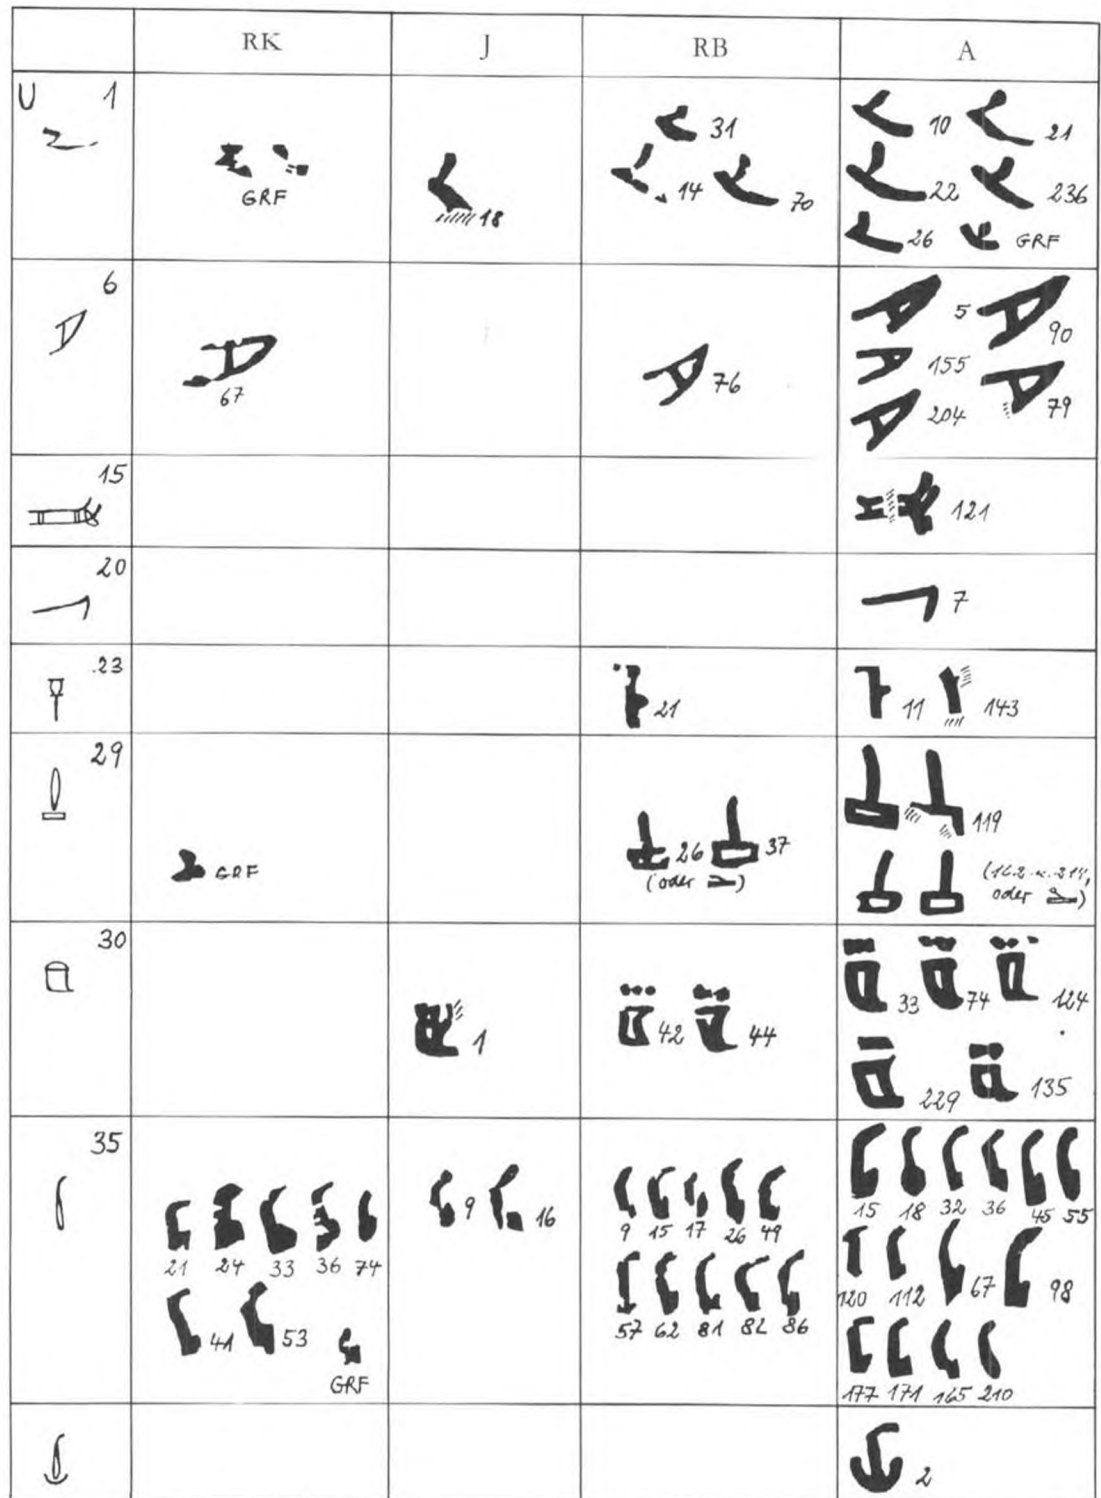 RK J RB A
U 1
GRF
18
31
14 70
10 21
22 236
26 GRF
6
67
76
5 90
155
204 79
15
121
20
7
23
21
11 143
29
GRF
26 37
(oder )
119
oder )
30
1
42 44
33 74 124
229 135
35
21 24 33 36 74
41 53
GRF
9 16
9 15 17 26 49
57 62 81 82 86
15 18 32 36 45 55
120 112 67 98
177 171 165 210
2